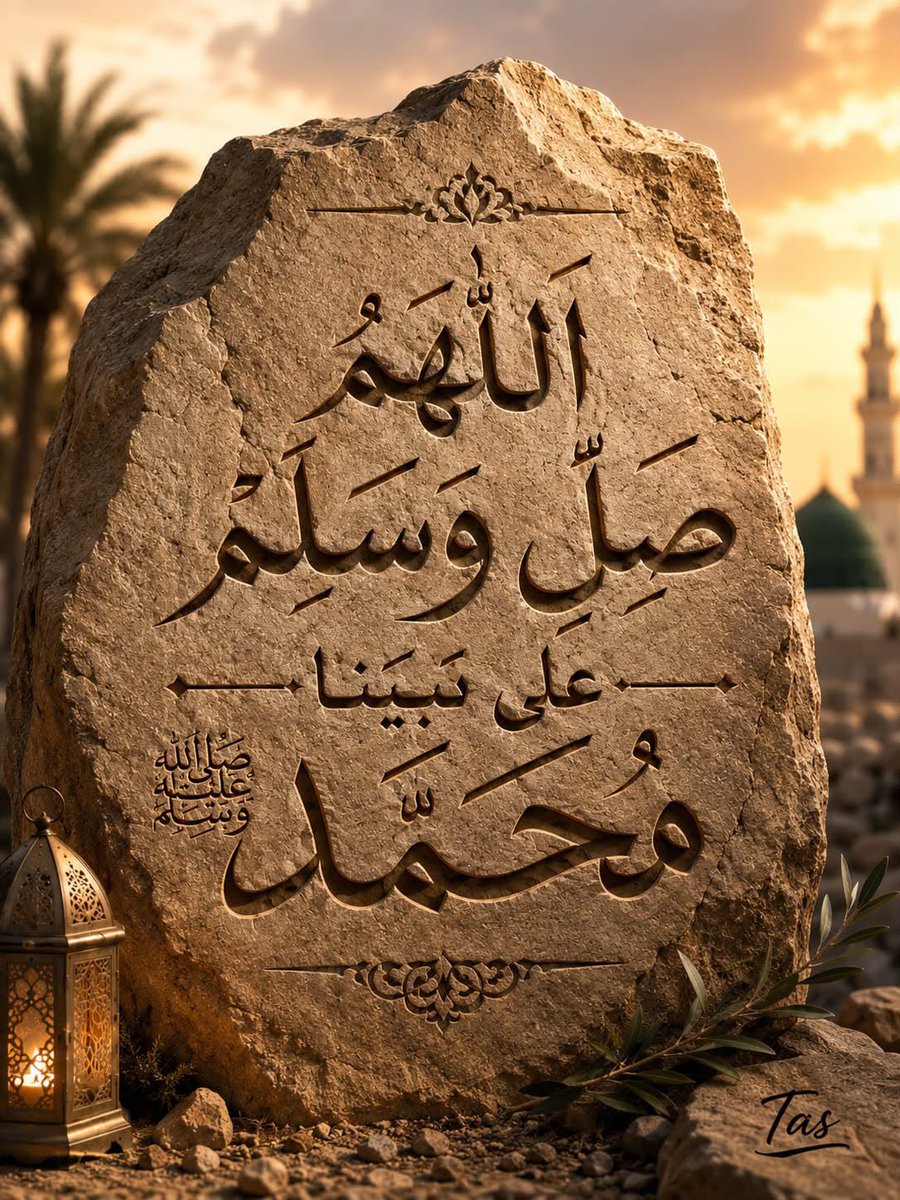 اَللّٰهَمُ
صَلِّ وَسَلِمْ
عَلَى نَبَيَنا
مُحَمَّد
صَلَّى اللّٰه
عَلَيْه
وَسَلَّم
Tas